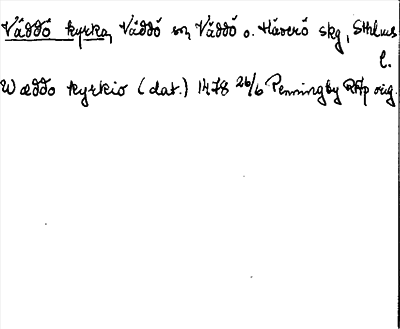 Väddö kyrka, Väddö sn, Väddö o. Häverö skg, Sthlms
l.
Wæddo kyrkio (dat.) 1478 26/6 Penningby RAp orig.